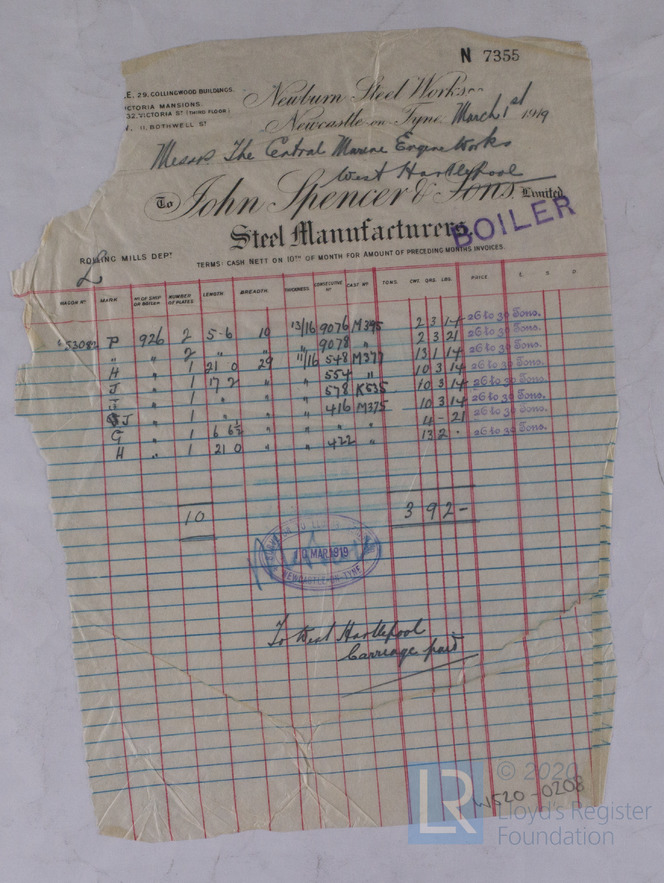 N 7355
E. 29, COLLINGWOOD BUILDINGS.
ICTORIA MANSIONS.
32, VICTORIA ST (THIRD FLOOR)
11, BOTHWELL ST
Newburn Steel Works
Newcastle-on-Tyne March 1st 1919
Messrs The Central Marine Engine Works
West Hartlepool
To John Spencer & Sons, Limited
Steel Manufacturers.
BOILER
ROLLING MILLS DEPT
TERMS: CASH NETT ON 10TH OF MONTH FOR AMOUNT OF PRECEDING MONTHS INVOICES.
L
WAGON NO MARK NO OF SHIP OR BOILER NUMBER OF PLATES LENGTH BREADTH THICKNESS CONSECUTIVE NO CAST NO TONS. CWT. QRS. LBS. PRICE £. S. D.
53082 P 926 2 5-6 10 13/16 9076 M395 2 3 14 26 to 30 Tons.
" " 2 " " " 9078 " 2 3 21 26 to 30 Tons.
H " 1 21 0 29 11/16 548 M377 13 1 14 26 to 30 Tons.
J " 1 17 2 " " 554 " 10 3 14 26 to 30 Tons.
J " 1 " " " 578 K535 10 3 14 26 to 30 Tons.
J " 1 " " " 416 M375 10 3 14 26 to 30 Tons.
G " 1 6 6½ " " " " 4 - 21 26 to 30 Tons.
H " 1 21 0 " " 422 " 13 2 . 26 to 30 Tons.
10 3 9 2 -
MAR 1919
NEWCASTLE-ON-TYNE
To West Hartlepool
Carriage paid
W520-0208
LR © 2020
Lloyd's Register
Foundation